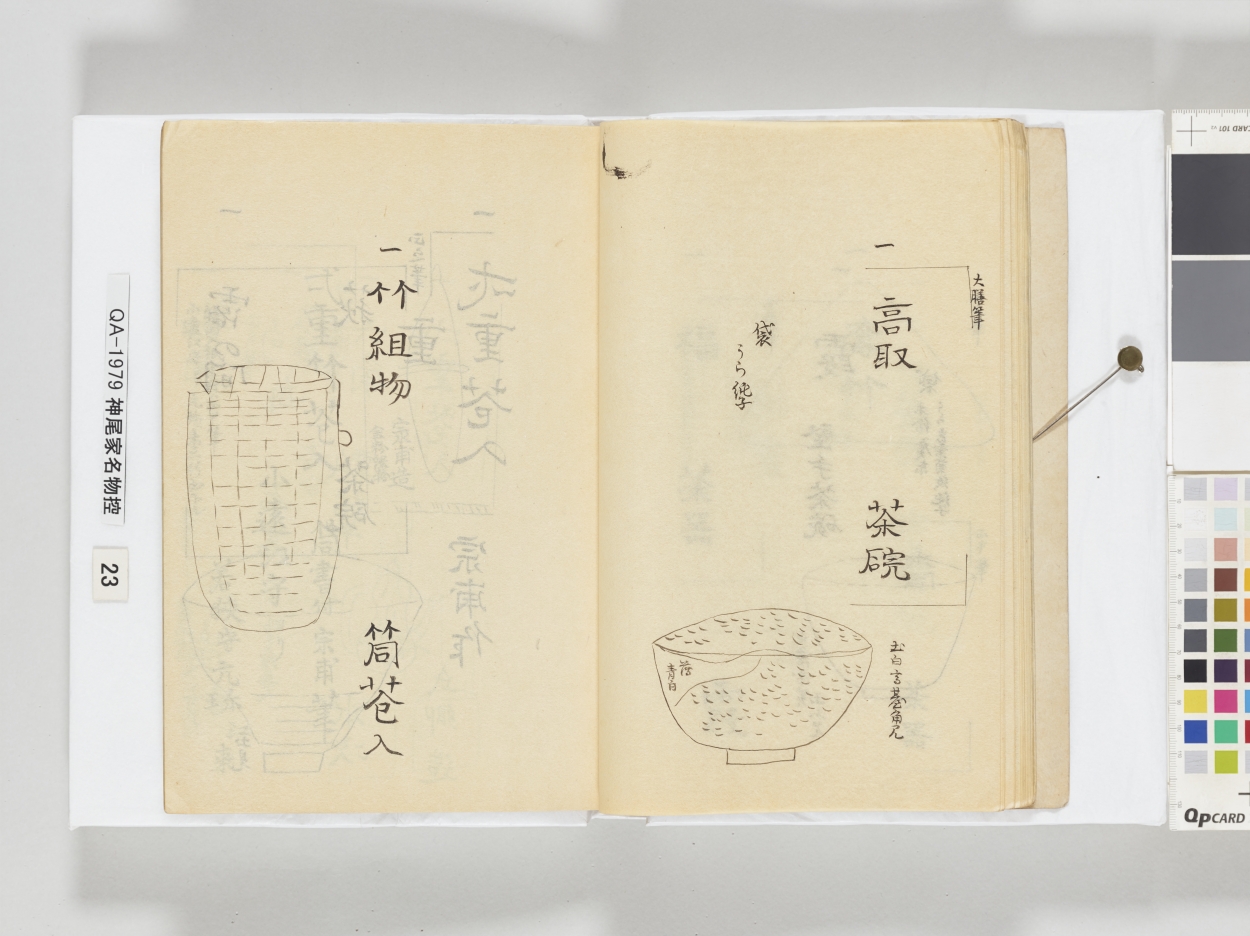 一
高取
茶碗
大膳筆
袋
うら純子
薄
青白
一
竹組物
筒花入
QA-1979 神尾家名物控
23
QP CARD
CARD 101